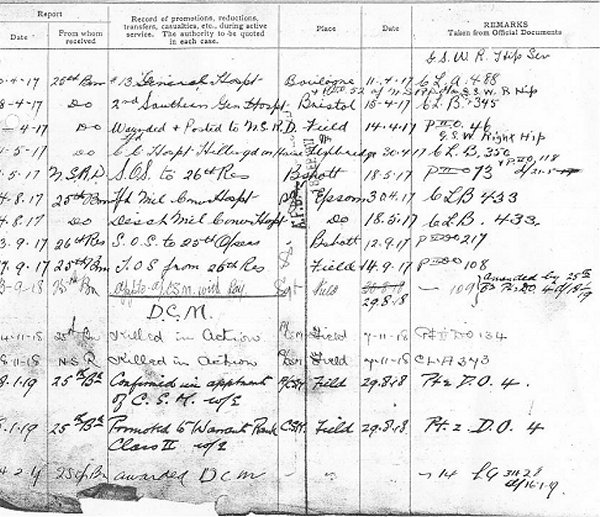 Report
Record of promotions, reductions, transfers, casualties, etc., during active service. The authority to be quoted in each case.
Place
Date
REMARKS
Taken from Official Documents
Date
From whom received
G.S.W. R. Hip Sev
0-4-17 25th Bn #13 General Hospt Boulogne 11-4-17 C L. A. 488
8-4-17 Do 2nd Southern Gen Hospt Bristol 15-4-17 C L. B. 345
-4-17 Do Wounded + Posted to N.S.R.D. Field 14.4.17 P II D.O. 46
G.S.W Right Hip
-5-17 Do C C Hospt 30-4-17 C L. B. 350
P II D.O. 118
.5.17 N.S.R.D. S.O.S. to 26th Res Bshott 18.5.17 P II DO 73
4.8.17 25th Bn Mil Conv Hospt Epsom 30.4.17 C L B 433
4.8.17 Do Disch Mil Conv Hospt Do 18.5.17 C L B . 433
3.9.17 26th Res S.O.S. to 25th O/seas Bshott 12.9.17 P II DO 217
7.9.17 25th Bn T.O.S from 26th Res Field 14.9.17 P II DO 108
3-9-18 25th Bn C.S.M. with Pay Sgt Field 29.8.18 109 amended by 25th Bn
D.C.M.
4-11-18 25th Bn Killed in Action Field 7-11-18 Pt II DO 134
8.11-18 N S R Killed in Action Field 7-11-18 CLA 373
8.1.19 25th Bn Confirmed in apptment A/CSM Field 29.8.18 Pt 2 D.O. 4.
of C. S. M. w/e
8.1.19 25th Bn Promoted to Warrant Rank C.S.M. Field 29.8.18 Pt. 2. D. O. 4
Class II w/e
4-2-19 25th Bn awarded D C M 14 LG 31128
d/16-1-19